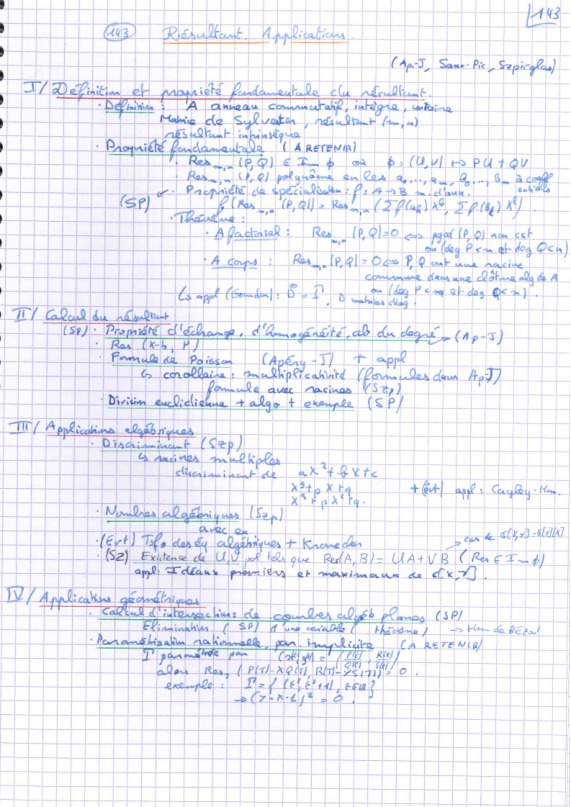 143
(143) Résultant. Applications.
(Ap-J, Saux-Pic, Szpirglas)
I/ Définition et propriété fondamentale du résultant.
· Définition : A anneau commutatif, intègre, unitaire
Matrice de Sylvester, résultant (m,n)
résultant intrinsèque
· Propriété fondamentale (A RETENIR)
· Res_{m,n} (P,Q) ∈ Im ϕ où ϕ = (U,V) ↦ PU + QV
· Res_{m,n} (P,Q) polynôme en les a_0,..., a_m, b_0,..., b_n à coeff entiers
(SP) · Propriété de spécialisation : f : A → B m. d'anx.
f(Res_{m,n} (P,Q)) = Res_{m,n} (Σ f(a_k) X^k, Σ f(b_k) X^k)
· Théorème :
· A factoriel : Res_{m,n} (P,Q)=0 ⇔ pgcd (P,Q) non cst
ou (deg P<m et deg Q<n)
· A corps : Res_{m,n} (P,Q)=0 ⇔ P,Q ont une racine
commune dans une clôture alg de A
ou (deg P<m et deg Q<n).
↳ appl (Gourdon) : D matrices diag.
II/ Calcul du résultant
(SP) · Propriété d'échange, d'homogénéité, ab du degré → (Ap-J)
· Res (X-b, P)
· Formule de Poisson (Apéry-J) + appl
↳ corollaire : multiplicativité (formules dans ApJ)
formule avec racines (Szp)
· Division euclidienne + algo + exemple (SP)
III/ Applications algébriques
· Discriminant (Szp)
↳ racines multiples
discriminant de aX²+bX+c
X³+pX+q + (Ért) appl : Cayley-Ham.
· Nombres algébriques (Szp)
avec ex
· (Ért) Tsf° des éq algébriques + Kronecker
· (SZ) Existence de U,V pol tels que Res(A,B) = UA+VB (Res ∈ Im ϕ)
appl : Idéaux premiers et maximaux de ℂ[X,Y].
IV/ Applications géométriques
· Calcul d'intersections de courbes algéb planes (SP)
Élimination (SP) d'une variable (théorème) → thm de Bézout
· Paramétrisation rationnelle, par. implicite (A RETENIR)
Γ paramétrée par (x(t), y(t)) = (P(t)/Q(t), R(t)/S(t))
alors Res_T (P(T)-XQ(T), R(T)-YS(T)) = 0.
exemple :
→ (Y-X-1)² = 0.